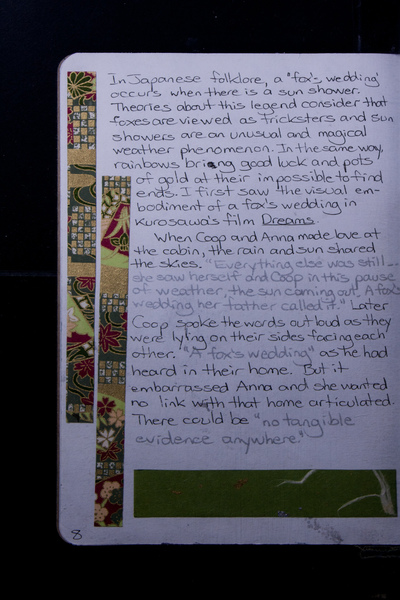 In Japanese folklore, a "fox's wedding"
occurs when there is a sun shower.
Theories about this legend consider that
foxes are viewed as tricksters and sun
showers are an unusual and magical
weather phenomenon. In the same way,
rainbows bring good luck and pots
of gold at their impossible to find
ends. I first saw the visual em-
bodiment of a fox's wedding in
Kurosawa's film Dreams.
When Coop and Anna made love at
the cabin, the rain and sun shared
the skies. "Everything else was still...
she saw herself and Coop in this pause
of weather, the sun coming out. A fox's
wedding her father called it." Later
Coop spoke the words out loud as they
were lying on their sides facing each
other. "A fox's wedding" as he had
heard in their home. But it
embarrassed Anna and she wanted
no link with that home articulated.
There could be "no tangible
evidence anywhere."
8